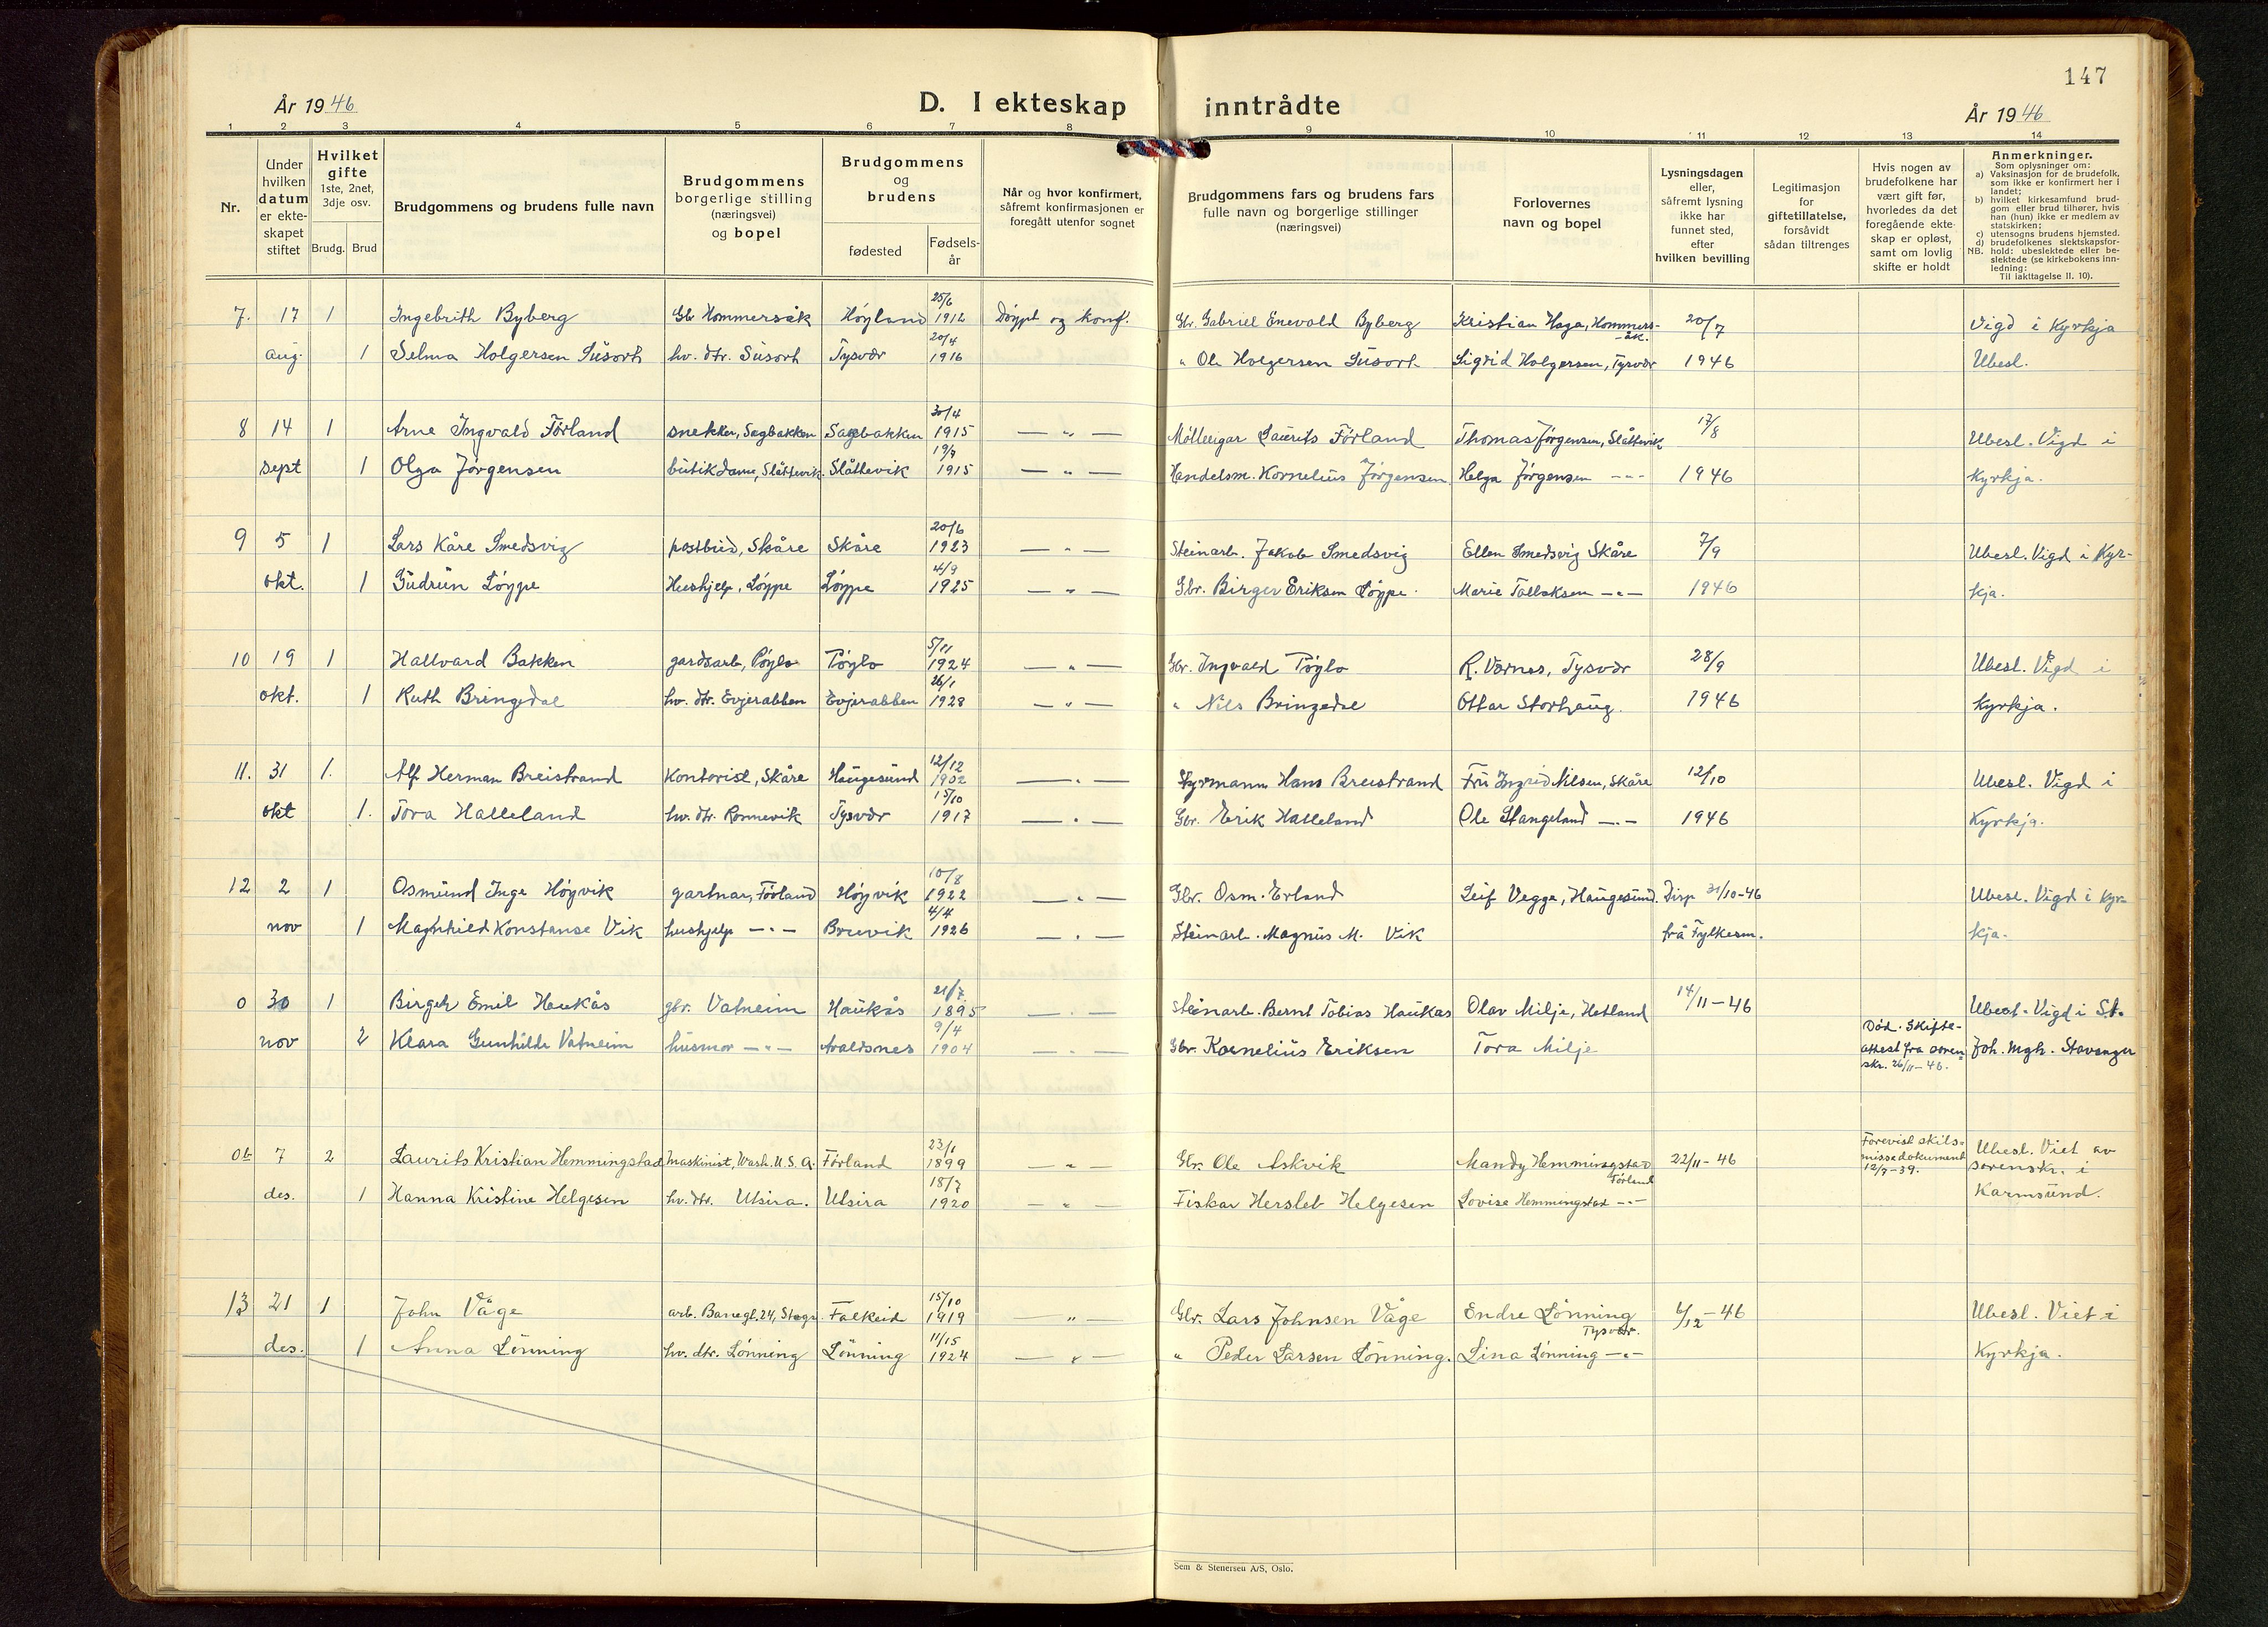 147
År 1946
D. I ekteskap inntrådte
År 1946
1 2 3 4 5 6 7 8 9 10 11 12 13 14
Nr.
Under hvilken datum er ekte- skapet stiftet
Hvilket gifte
1ste, 2net, 3dje osv.
Brudg. Brud
Brudgommens og brudens fulle navn
Brudgommens borgerlige stilling (næringsvei) og bopel
Brudgommens og brudens
fødested
Fødsels- år
Når og hvor konfirmert, såfremt konfirmasjonen er foregått utenfor sognet
Brudgommens fars og brudens fars fulle navn og borgerlige stillinger (næringsvei)
Forlovernes navn og bopel
Lysningsdagen eller, såfremt lysning ikke har funnet sted, efter hvilken bevilling
Legitimasjon for giftetillatelse, forsåvidt sådan tiltrenges
Hvis nogen av brudefolkene har vært gift før, hvorledes da det foregående ekte- skap er opløst, samt om lovlig skifte er holdt
Anmerkninger.
Som oplysninger om:
a) Vaksinasjon for de brudefolk, som ikke er konfirmert her i landet;
b) hvilket kirkesamfund brud- gom eller brud tilhører, hvis han (hun) ikke er medlem av statskirken;
c) utensogns brudens hjemsted.
d) brudefolkenes slektskapsfor-
NB. hold: ubeslektede eller be- slektede (se kirkebokens inn- ledning:
Til iakttagelse II. 10).
7. 17 1 Ingebrith Byberg Gb Hommersåk Høyland 25/6 1912 Døypt og konf. Gbr. Gabriel Enevald Byberg Kristian Haga, Hommers- åk. 20/7 Vigd i Kyrkja
aug. 1 Selma Holgersen Susort hv. dtr. Susort Tysvær 20/4 1916 " Ole Holgersen Susort Sigrid Holgersen, Tysvær 1946 Ubesl.
8 14 1 Arne Ingvald Førland snekker, Sagbakken Sagbakken 30/4 1915 — " — Mølleeigar Laurits Førland Thomas Jørgensen, Slåttevik 17/8 Ubesl. Vigd i
sept 1 Olga Jørgensen butikdame, Slåttevik Slåttevik 1915 — " — Handelsm. Kornelius Jørgensen Helga Jørgensen -"- 1946 Kyrkja.
9 5 1 Lars Kåre Smedsvig postbud, Skåre Skåre 20/6 1923 — " — Steinarb. Jakob Smedsvig Ellen Smedsvig Skåre 7/9 Ubesl. Vigd i Kyr-
okt. 1 Gudrun Løype Hushjelp, Løype Løype 4/9 1925 — " — Gbr. Birger Eriksen Løype. Marie Tollaksen -"- 1946 kja.
10 19 1 Hallvard Bakken gardsarb, Pøylo Pøylo 5/11 1924 — " — Gbr. Ingvald Pøylo R. Varnes, Tysvær 28/9 Ubesl. Vigd i
okt. 1 Ruth Bringedal hv. dtr. Evjerabben Evjerabben 26/1 1928 — " — " Nils Bringedal Ottar Storhaug. 1946 Kyrkja.
11. 31 1. Alf Herman Breistrand Kontorist, Skåre Haugesund 12/12 1902 — " — Styrmann Hans Breistrand Fru Ingrid Nilsen, Skåre 12/10 Ubesl. Vigd i
okt 1. Tora Halleland hv. dtr. Rønnevik Tysvær 15/10 1917 — " — Gbr. Erik Halleland Ole Stangeland -"- 1946 Kyrkja.
12 2 1 Osmund Inge Høyvik gartnar, Førland Høyvik 10/8 1922 — " — Gbr. Osm. Erland Leif Vegge, Haugesund. Disp 31/10-46 Ubesl. Vigd i Kyr-
nov 1 Magnhild Konstanse Vik hushjelp -"- Bruvik 4/4 1926 — " — Steinarb. Magnus M. Vik frå Fylkesm. kja.
0 30 1 Birger Emil Haukås gbr. Vatneim Haukås 21/7 1895 — " — Steinarb. Bernt Tobias Haukås Olav Milje, Hetland 14/11-46 Ubesl. Vigd i St.
nov 2 Klara Gunhilde Vatneim husmor -"- Avaldsnes 9/4 1904 — " — Gbr. Kornelius Eriksen Tora Milje Død. Skifte- attest fra soren- skr. 26/11-46. Joh. mgh. Stavanger
0b 7 2 Laurits Kristian Hemmingstad Maskinist, Wash. U.S.A. Førland 23/1 1899 — " — Gbr. Ole Askvik Mandy Hemmingstad Førland 22/11-46 Forevist skils- missedokument 12/7-39. Ubesl. Viet av sorenskr. i
des. 1 Hanna Kristine Helgesen hv. dtr. Utsira. Utsira 18/7 1920 — " — Fiskar Hersleb Helgesen Lovise Hemmingstad -"- Karmsund.
13 21 1 John Våge arb. Banegl. 24, Stvgr. Falkeid 15/10 1919 — " — Gbr. Lars Johnsen Våge Endre Lønning Tysvær. 6/12-46 Ubesl. Viet i
des. 1 Anna Lønning hv. dtr. Lønning Lønning 11/15 1924 — " — " Peder Larsen Lønning. Lina Lønning -"- Kyrkja.
Sem & Stenersen A/S, Oslo.